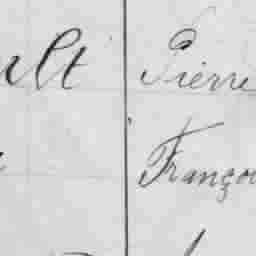 ult Pierre
Franço